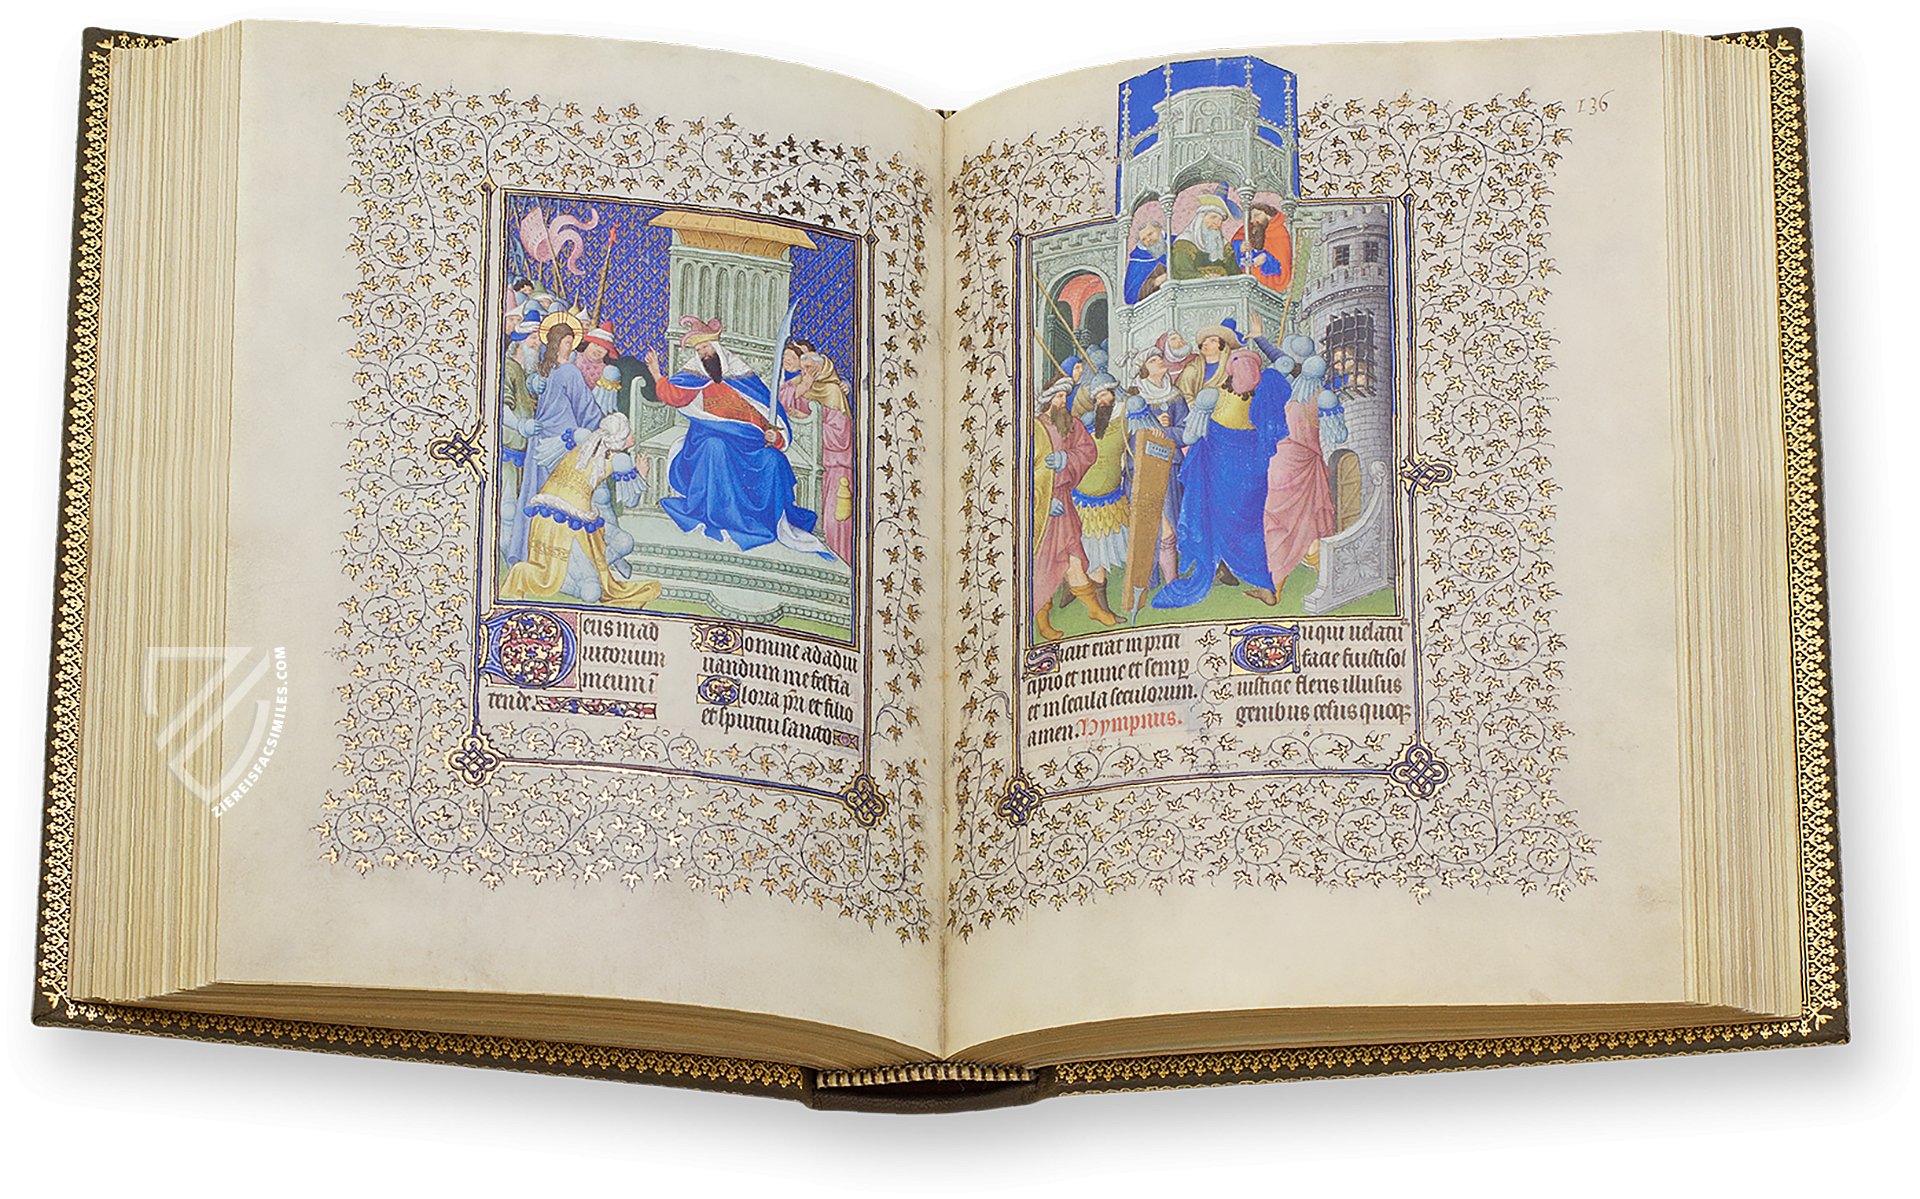 136
Deus in ad
iutorium
meum ī
tende.
Domine ad adiu
uandum me festia
Gloria pr̄i et filio
et spiritui sancto
Sicut erat in prin
cipio et nunc et semp̄
et in secula seculorum.
amen. Hympnus.
Tu qui uelatus
facie fuisti sol
iusticie flexis illusus
genibus cesus quoq̄
ZIEREISFACSIMILES.COM